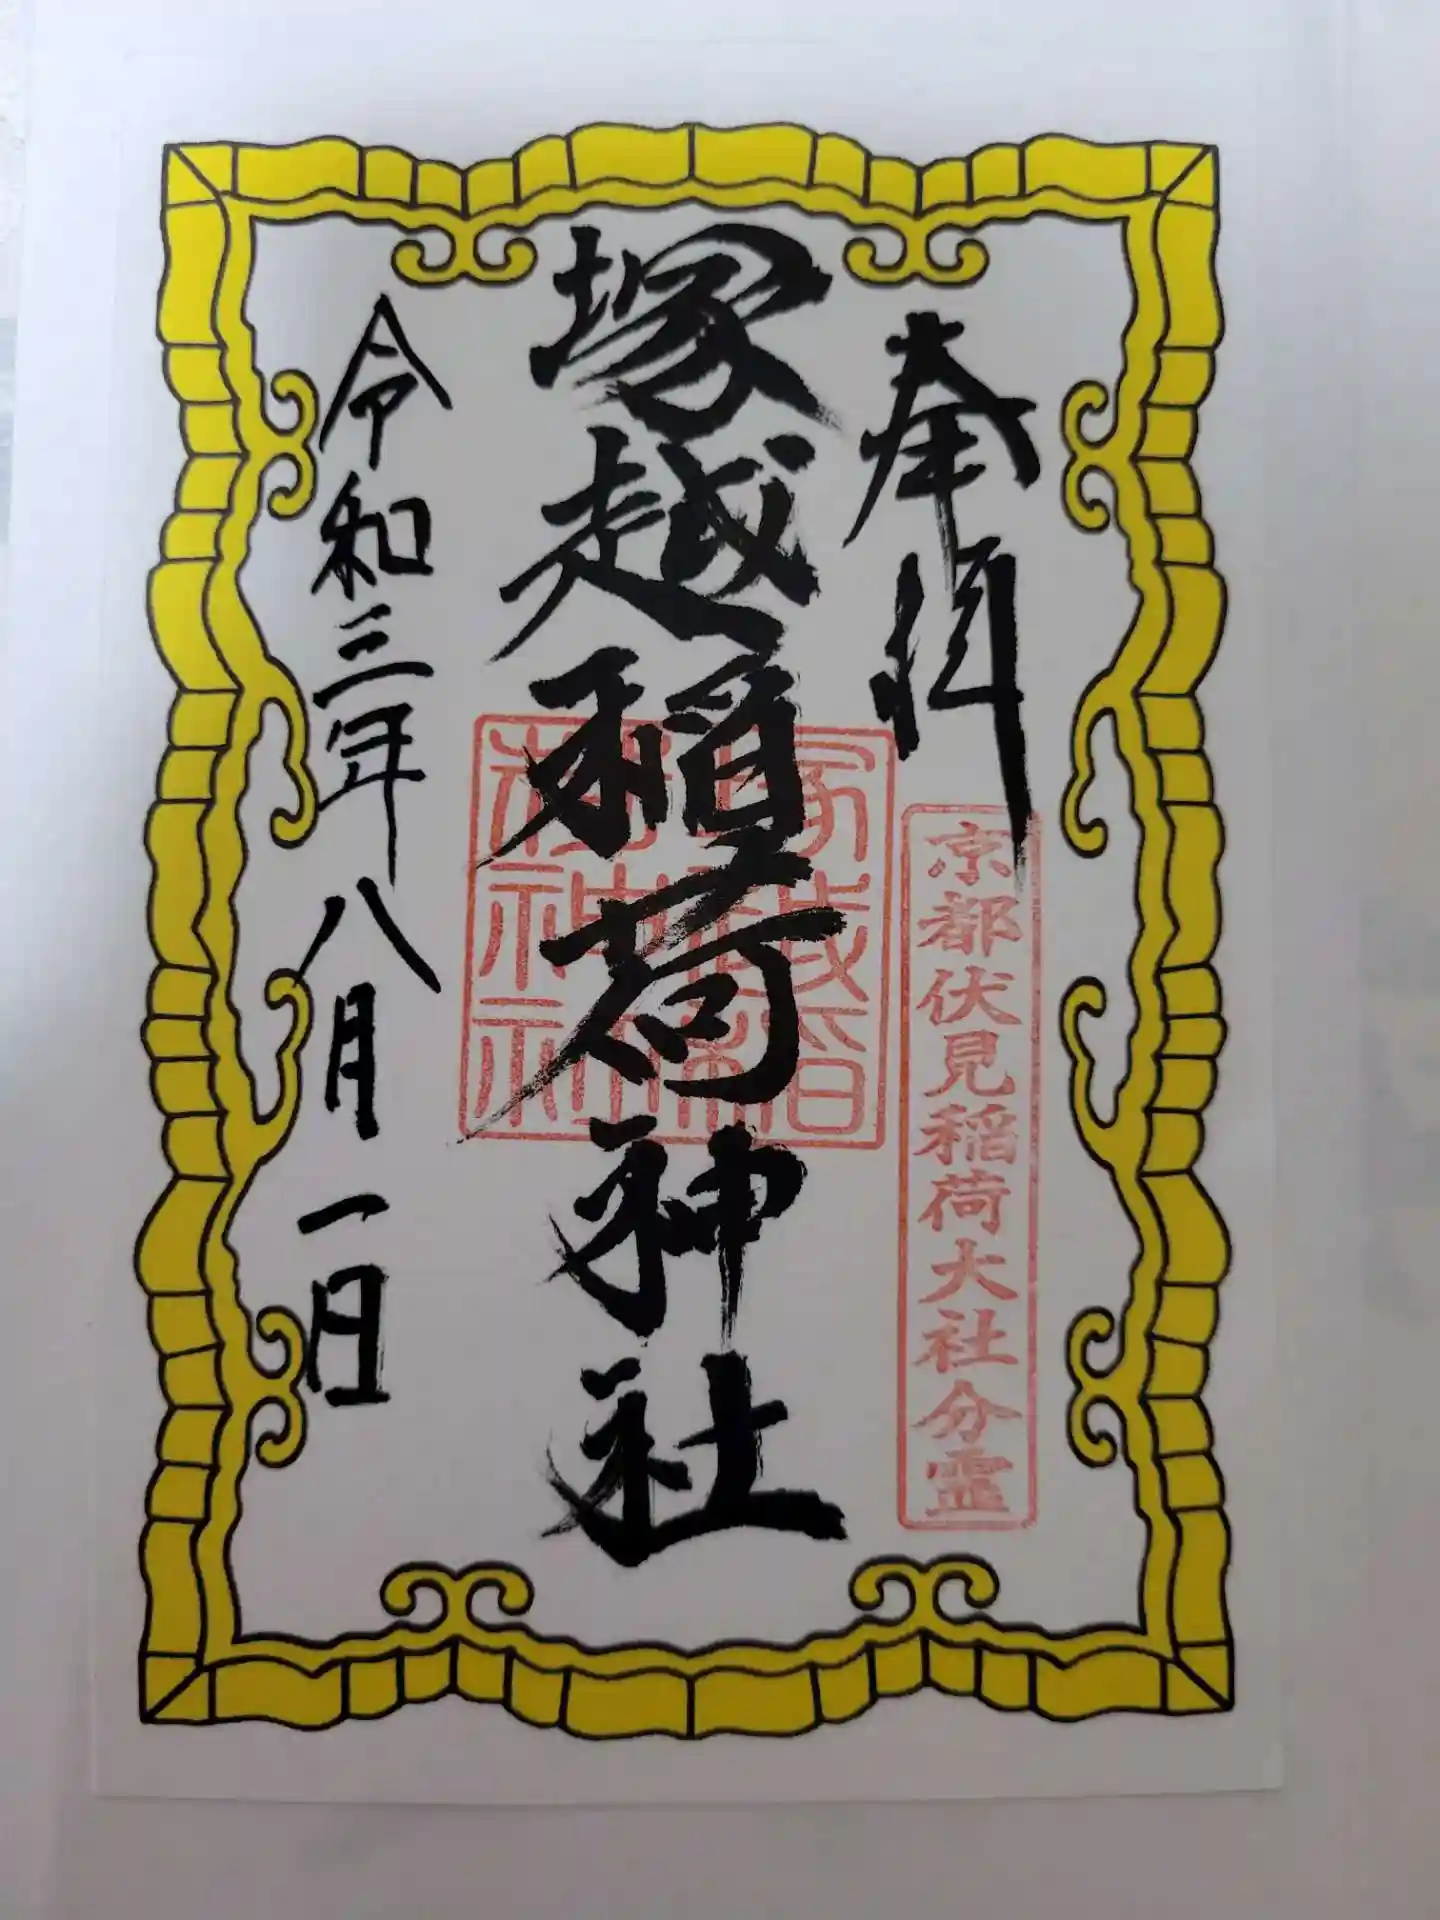 奉拝
京都伏見稲荷大社分霊
塚越稲荷神社
塚越稲荷神社
令和三年八月一日